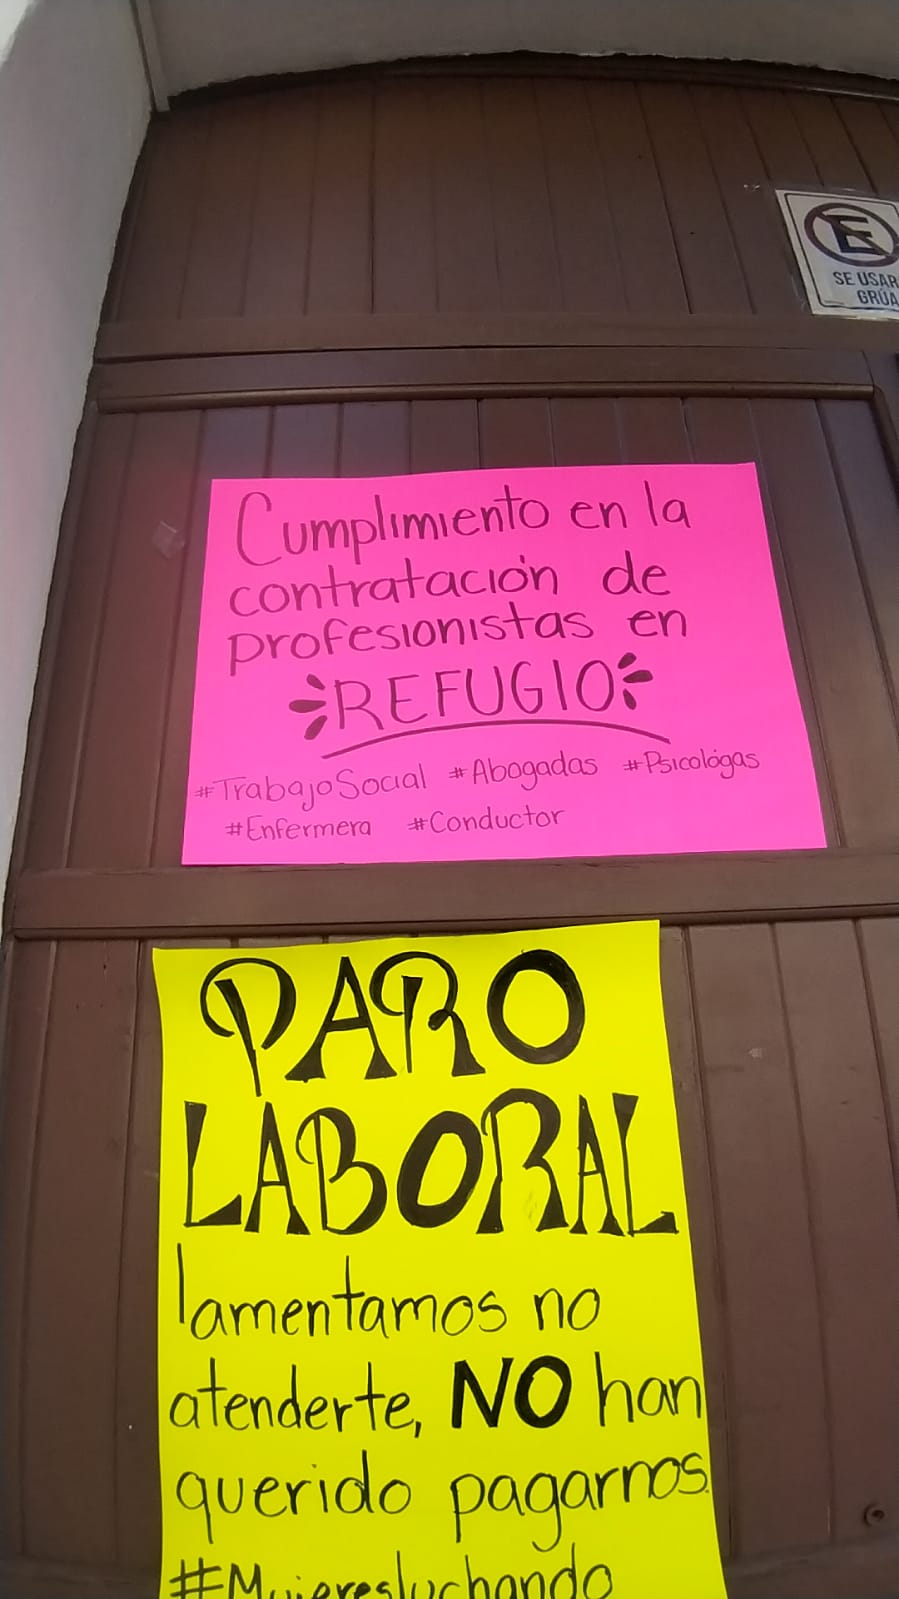 E
SE USAR
GRÚA
Cumplimiento en la
contratación de
profesionistas en
REFUGIO
#TrabajoSocial #Abogadas #Psicológas
#Enfermera #Conductor
PARO
LABORAL
lamentamos no
atenderte, NO han
querido pagarnos.
#Mujeresluchando